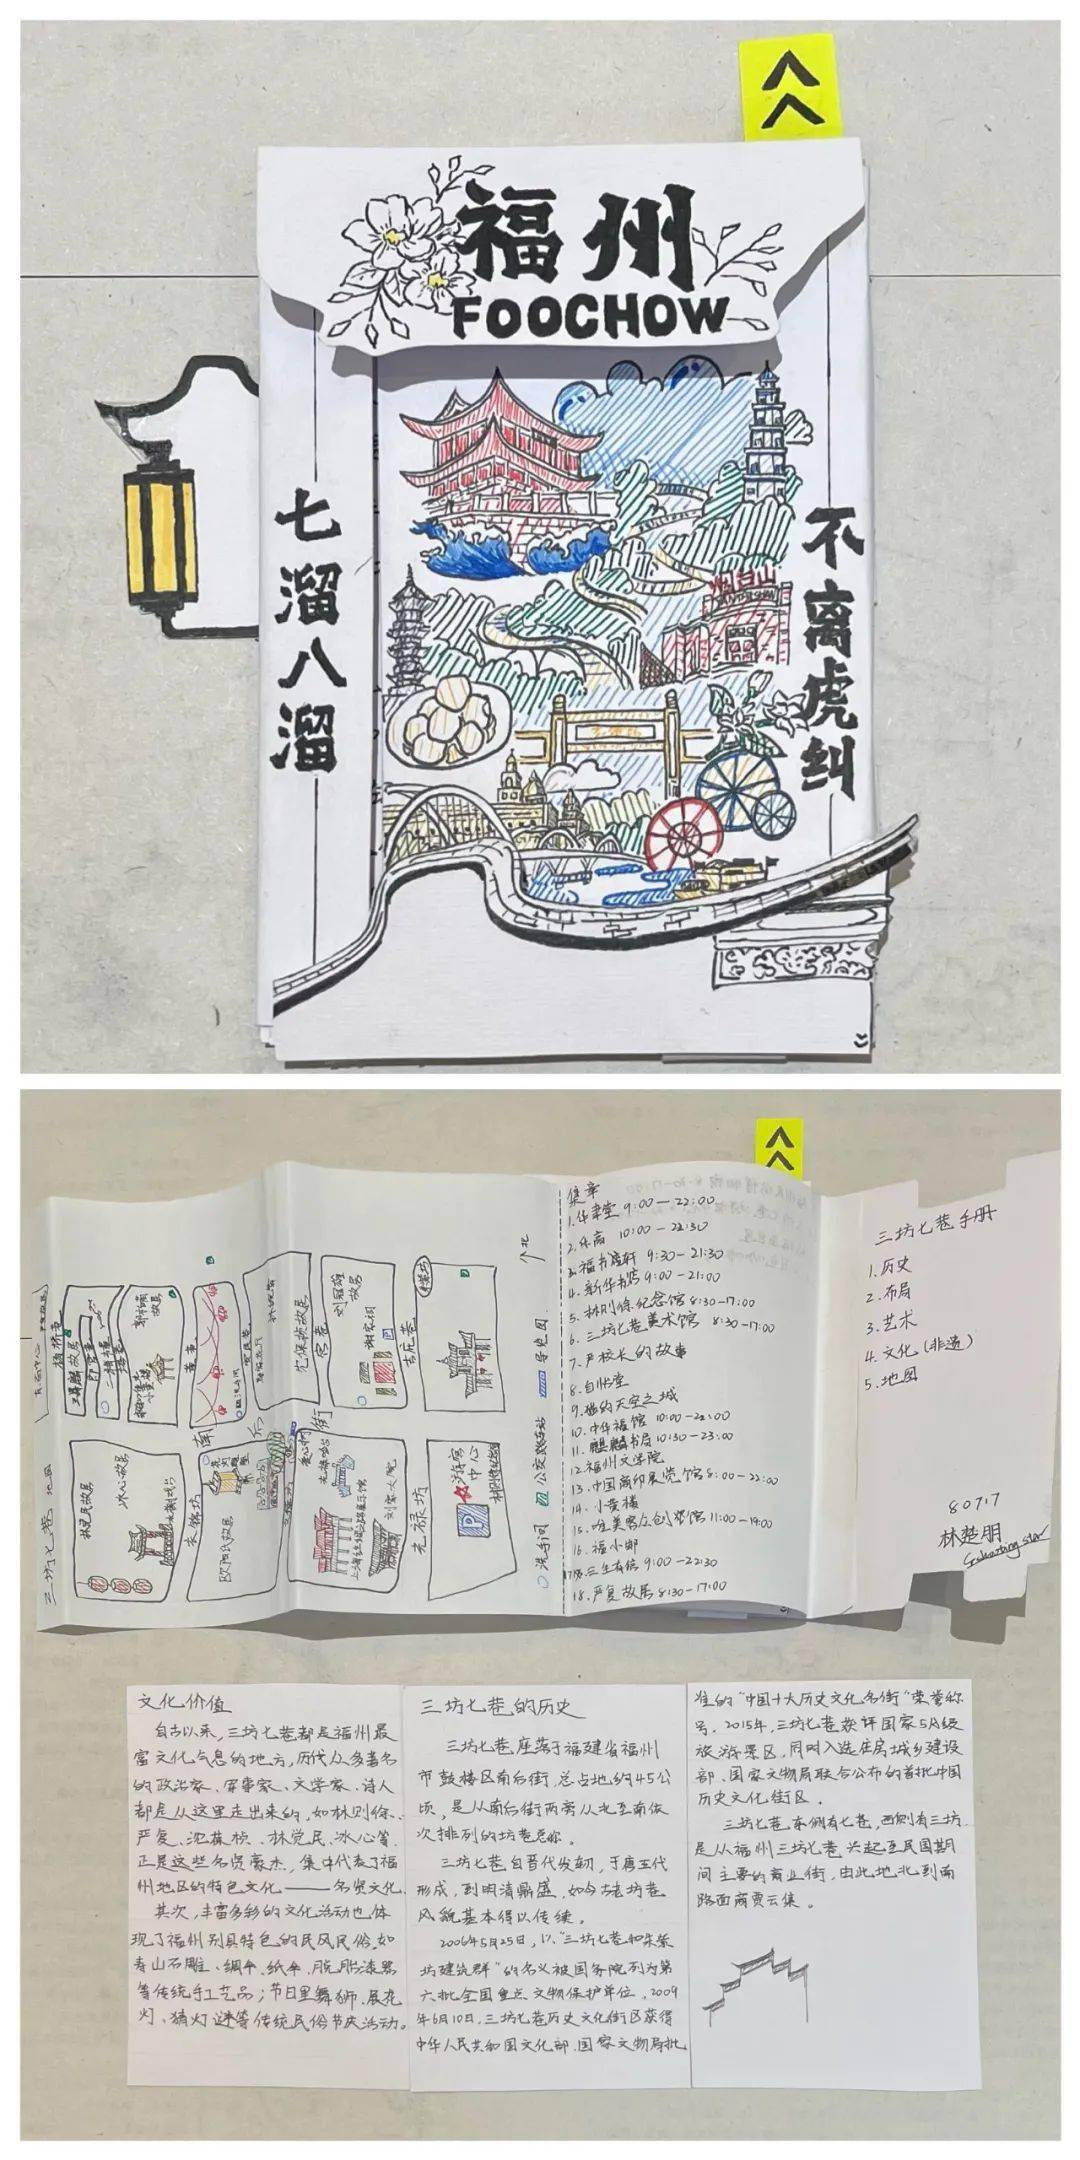 福州
FOOCHOW
七溜八溜
不离虎纠
烟台山
三坊七巷 地图
林觉民故居
冰心故居
郎官巷
二梅书屋
黄巷
郭柏荫故居
南后街
衣锦坊
欧阳氏故居
宫巷
沈葆桢故居
刘冠雄故居
谢家祠
P
刘家大院
吉庇巷
光禄坊
P
游客中心
个北
洗手间
公交站
导览图
集章
1.华聿堂 9:00—22:00
2.乐高 10:00—22:30
3.福书渲轩 9:30—21:30
4.新华书店 9:00—21:00
5.林则徐纪念馆 8:30-17:00
6.三坊七巷美术馆 8:30-17:00
7.严校长的故事
8.自怡堂
9.她的天空之城
10.中华福馆 10:00—22:00
11.麒麟书局 10:30—23:00
12.福州文学院
13.中国商印展览馆 8:00—22:00
14.小黄楼
15.唯美客众创空馆 11:00—19:00
16.福小邮
17.三生有信 9:00—22:30
18.严复故居 8:30-17:00
三坊七巷手册
1.历史
2.布局
3.艺术
4.文化(非遗)
5.地图
80717
林楚明
文化价值
自古以来,三坊七巷都是福州最
富文化气息的地方,历代众多著名
的政治家、军事家、文学家、诗人
都是从这里走出来的,如林则徐、
严复、沈葆桢、林觉民、冰心等.
正是这些名贤豪杰,集中代表了福
州地区的特色文化——名贤文化.
其次,丰富多彩的文化活动也体
现了福州别具特色的民风民俗.如
寿山石雕、绸伞、纸伞、脱胎漆器
等传统手工艺品;节日里舞狮、展花
灯、猜灯谜等传统民俗节庆活动。
三坊七巷的历史
三坊七巷座落于福建省福州
市鼓楼区南后街,总占地约45公
顷,是从南后街两旁从北至南依
次排列的坊巷总称。
三坊七巷自晋代发轫,于唐五代
形成,到明清鼎盛,如今古老坊巷
风貌基本得以传续。
2006年5月25日,以“三坊七巷和朱紫
坊建筑群”的名义被国务院列为第
六批全国重点文物保护单位,2009
年6月10日,三坊七巷历史文化街区获得
中华人民共和国文化部、国家文物局批
准的“中国十大历史文化名街”荣誉称
号。2015年,三坊七巷获评国家5A级
旅游景区,同时入选住房城乡建设
部、国家文物局联合公布的首批中国
历史文化街区。
三坊七巷东侧有七巷,西侧有三坊.
是从福州三坊七巷兴起至民国期
间主要的商业街,由此地北到南
路面商贾云集。